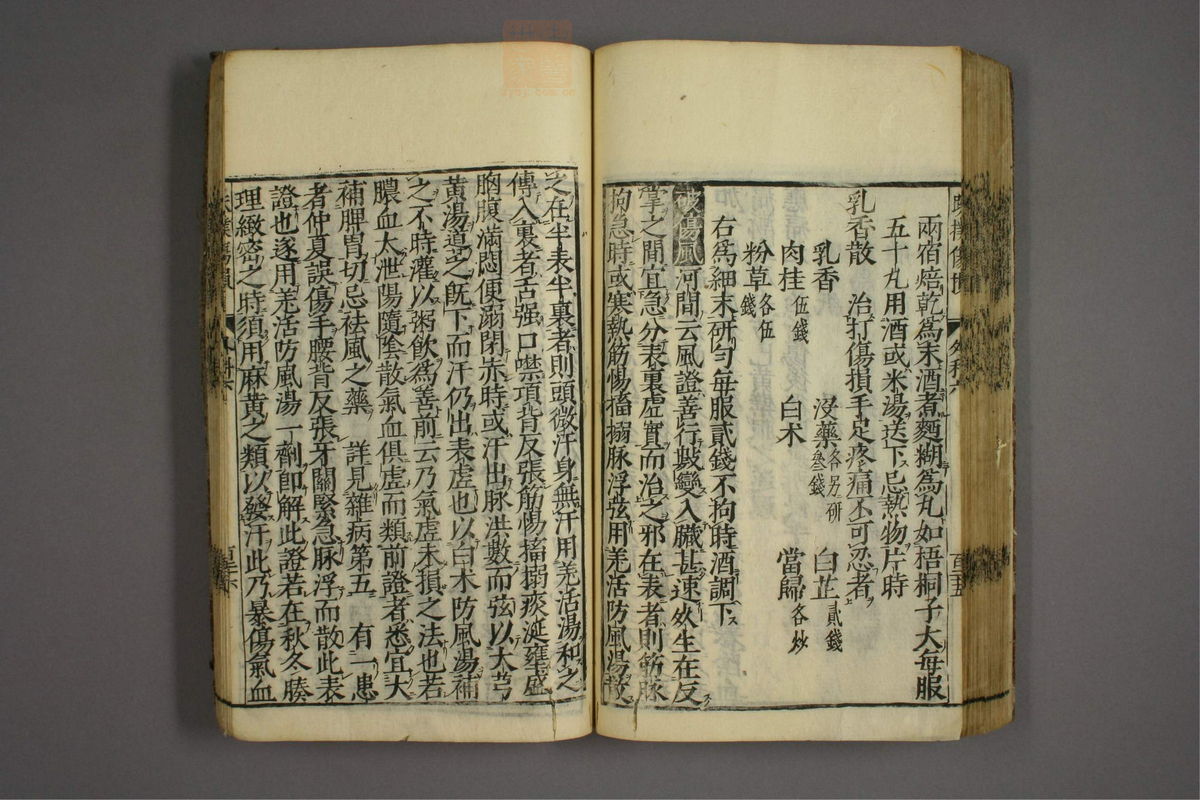 兩宿焙乾爲末酒煮麵糊爲丸如梧桐子大每服
五十丸用酒或米湯送下忌熱物片時
乳香散　治打傷損手足疼痛不可忍者
乳香　沒藥各另研叁錢　白芷貳錢
肉桂伍錢　白朮　當歸各炒
粉草各伍錢
右爲細末研勻每服貳錢不拘時酒調下
破傷風河間云風證善行數變入臟甚速死生在反
掌之間宜急分表裏虛實而治之邪在表者則筋脉
拘急時或寒熱筋惕搐搦脉浮弦用羌活防風湯散
之在半表半裏者則頭微汗身無汗用羌活湯和之
傳入裏者舌强口噤項背反張筋惕搐搦痰涎壅盛
胸腹滿悶便溺閉赤時或汗出脉洪數而弦以大芎
黃湯導之旣下而汗仍出表虛也以白朮防風湯補
之不時灌以粥飲爲善前云乃氣虛未損之法也若
膿血太泄陽隨陰散氣血俱虛而類前證者悉宜大
補脾胃切忌祛風之藥　詳見雜病第五　有一患
者仲夏誤傷手腰背反張牙關緊急脉浮而散此表
證也遂用羌活防風湯一劑卽解此證若在秋冬腠
理緻密之時須用麻黃之類以發汗此乃暴傷氣血